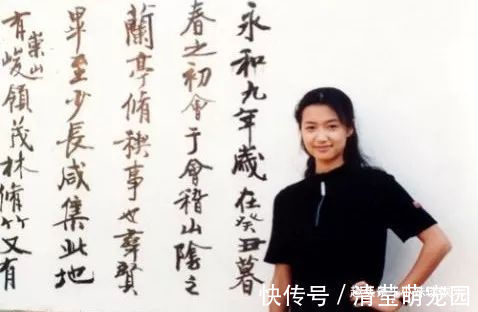 永和九年歲在癸丑暮
春之初會于會稽山陰之
蘭亭脩稧事也羣賢
畢至少長咸集此地
有崇山峻領茂林脩竹又有
快传号／清莹萌宠园